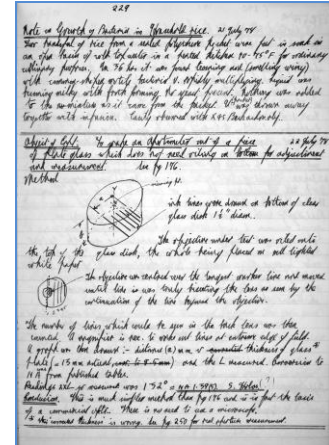 229
Note on Growth of Bacteria in Uncooked rice. 21 July 78
Two handfuls of rice from a sealed polythene packet were put in soak in
an open basin of with tap water in a heated kitchen 70-75°F for ordinary
culinary purposes. In 36 hrs it was found teeming and smelling winey
with common motile bacteria & rapidly multiplying. Liquid was
turning milky with froth forming the usual process. Nothing was added
to the rice as it came from the packet. It was thrown away
together with infusion. Easily observed with
Object of Expt. To make an Apertometer out of a piece 22 July 78
of plate glass which does not need oiling on bottom for adjustment
and measurement. See pg 176.
Method
ink lines were drawn on bottom of clear
glass disk 1.6" diam.
The objective under test was oiled onto
the top of the glass disk, the whole being placed on well lighted
white paper
The objective was centred over the longest marker line and moved
until line is seen truly bisecting the lens as seen by the
continuation of the line beyond the objective.
The number of lines which could be seen in the back lens was then
counted. A magnifier is nec. to make out lines at extreme edge of field.
A graph was then drawn - distance (a) mm. v thickness of glass
plate = 15 mm actual and the L measured. Conversion to
N.A. from published tables.
was measured was 1.52
Conclusion This is much simpler method than pg 176 and is in fact the basis
of a commercial apptr. There is no need to use a microscope.
* this incorrect thickness is wrong. See pg 250 for